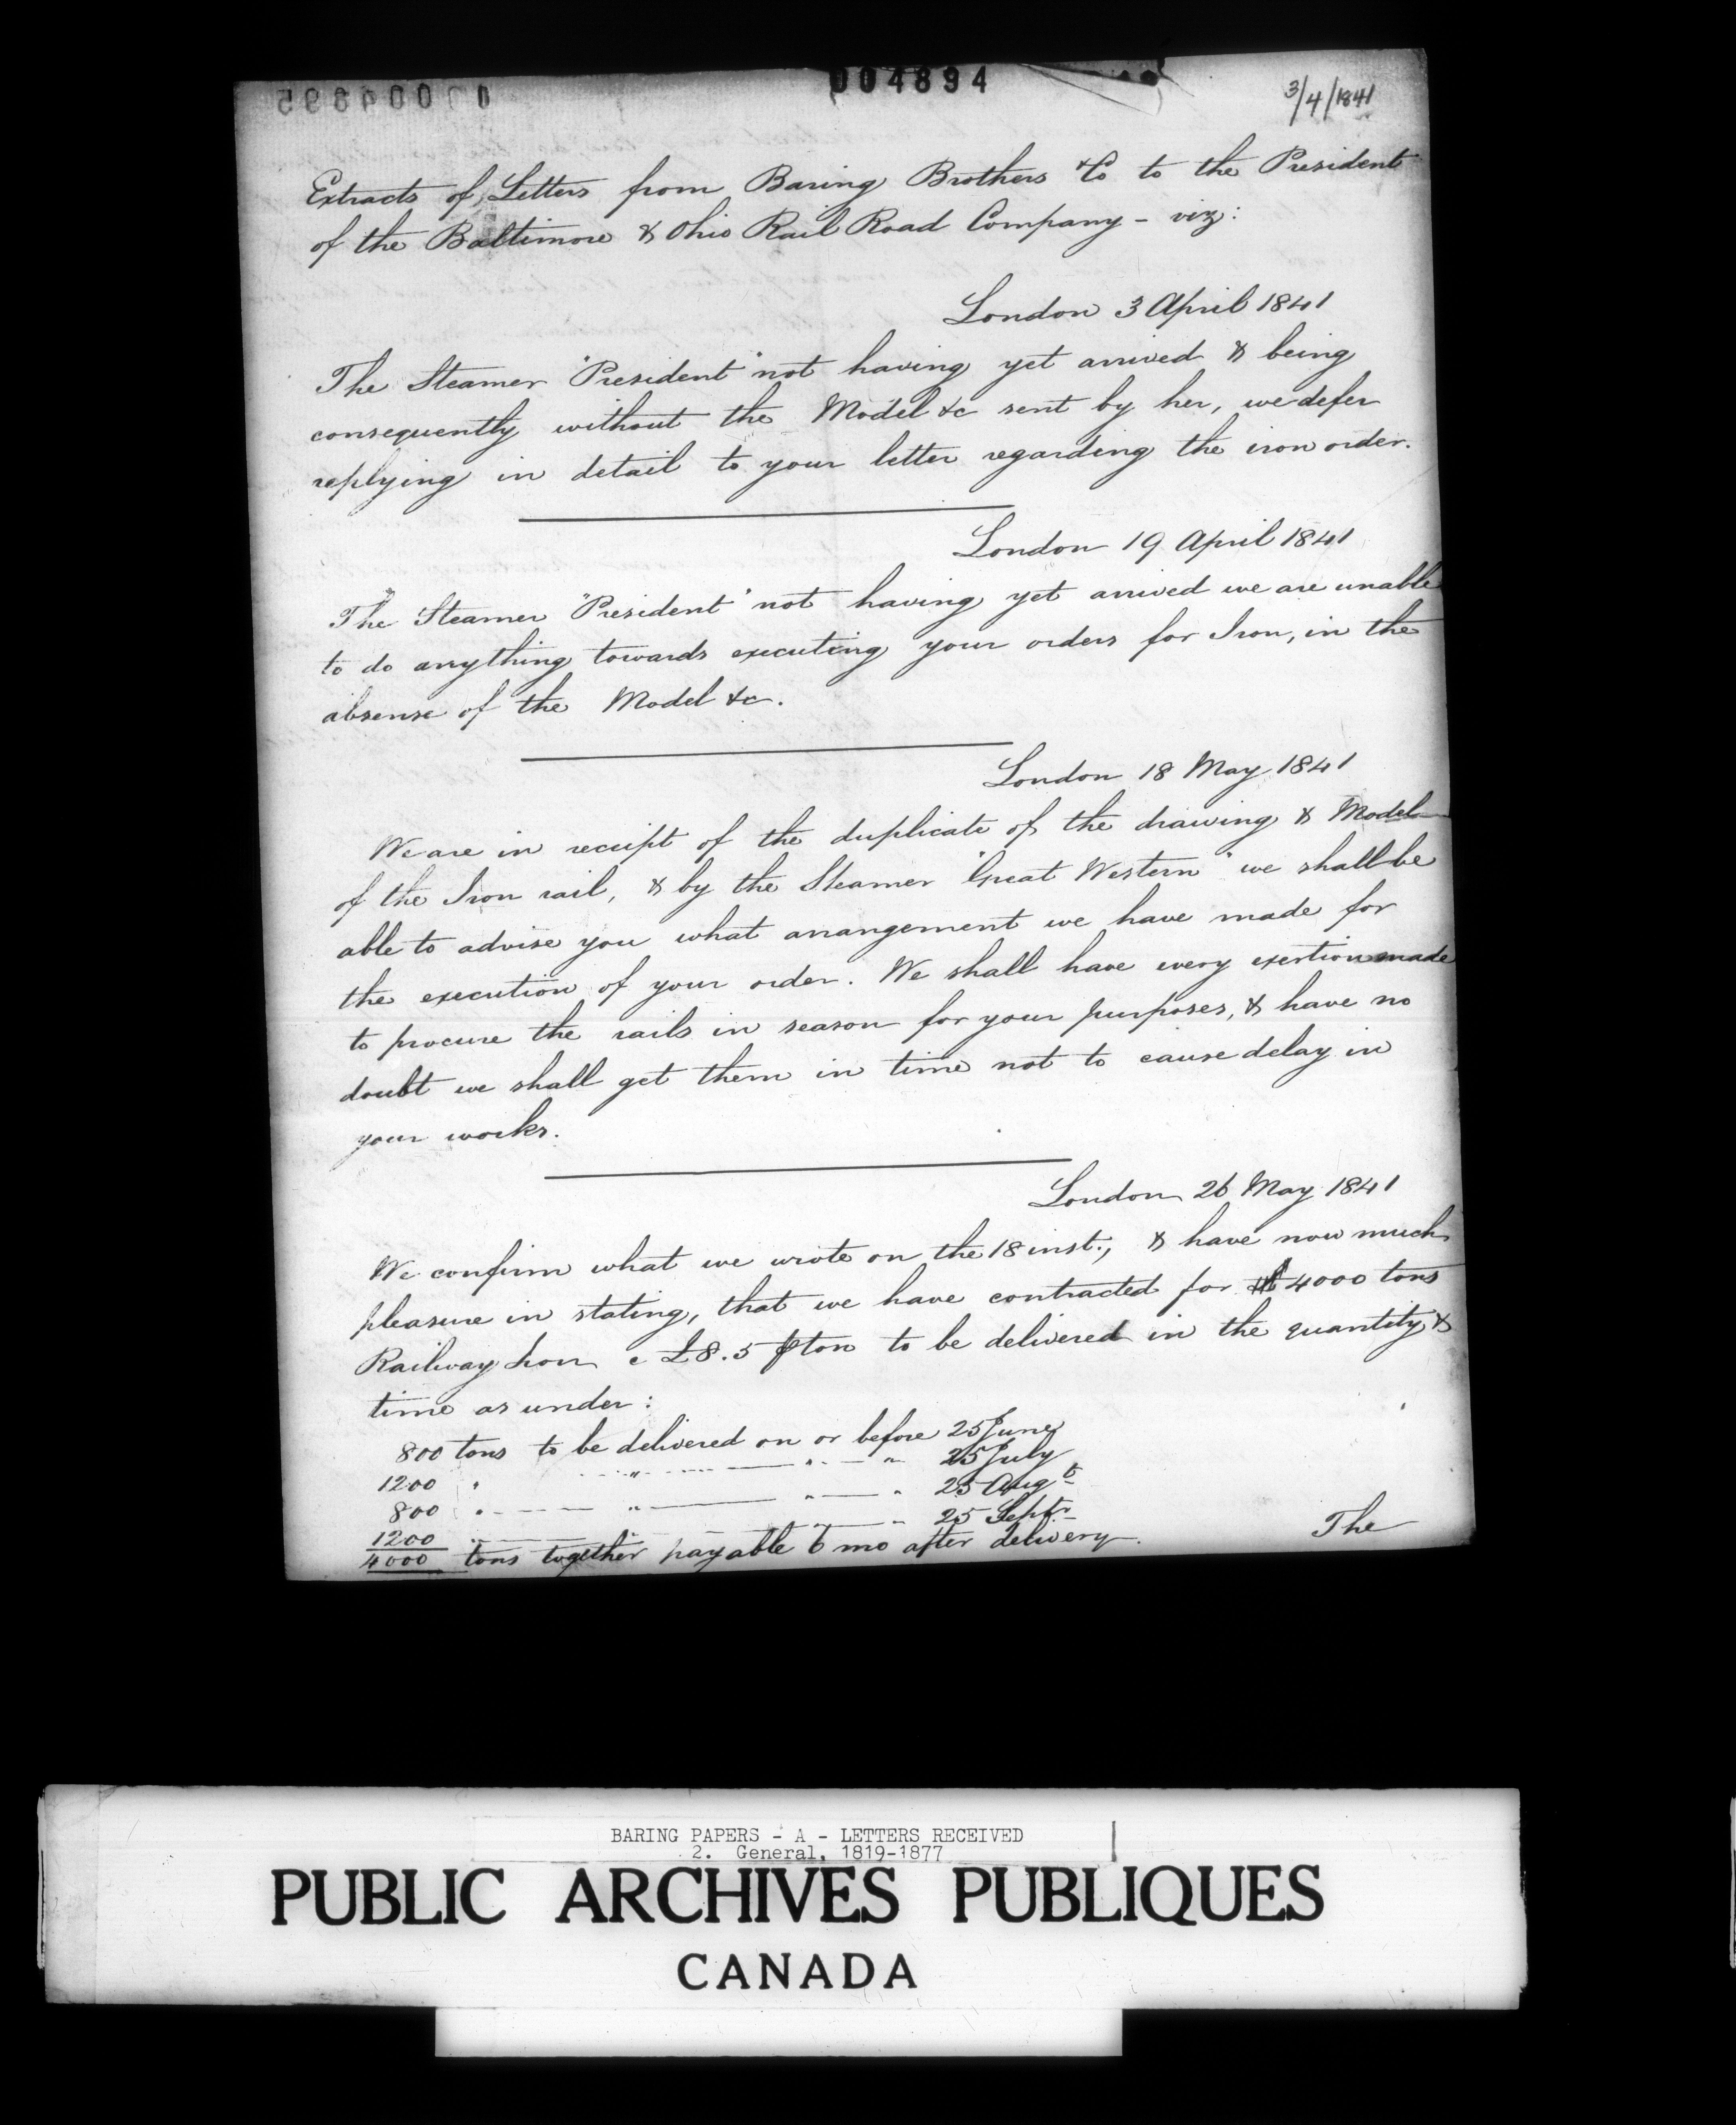 004894
3/4/1841
Extracts of Letters from Baring Brothers & Co to the President
of the Baltimore & Ohio Rail Road Company - viz:
London 3 April 1841
The Steamer "President" not having yet arrived & being
consequently without the Model &c sent by her, we defer
replying in detail to your letter regarding the iron order.
London 19 April 1841
The Steamer "President" not having yet arrived we are unable
to do anything towards executing your orders for Iron, in the
absense of the Model &c.
London 18 May 1841
We are in receipt of the duplicate of the drawing & Model
of the Iron rail, & by the Steamer "Great Western" we shall be
able to advise you what arrangement we have made for
the execution of your order. We shall have every exertion made
to procure the rails in season for your purposes, & have no
doubt we shall get them in time not to cause delay in
your works.
London 26 May 1841
We confirm what we wrote on the 18 inst., & have now much
pleasure in stating, that we have contracted for 4000 tons
Railway Iron @ £8.5 ⅌ ton to be delivered in the quantity &
time as under:
800 tons to be delivered on or before 25 June
1200 " " " " 25 July
800 " " " " 25 Augt
1200 " " " " 25 Septr
4000 tons together payable 6 mo after delivery.
The
BARING PAPERS - A - LETTERS RECEIVED
2. General, 1819-1877
PUBLIC ARCHIVES PUBLIQUES
CANADA